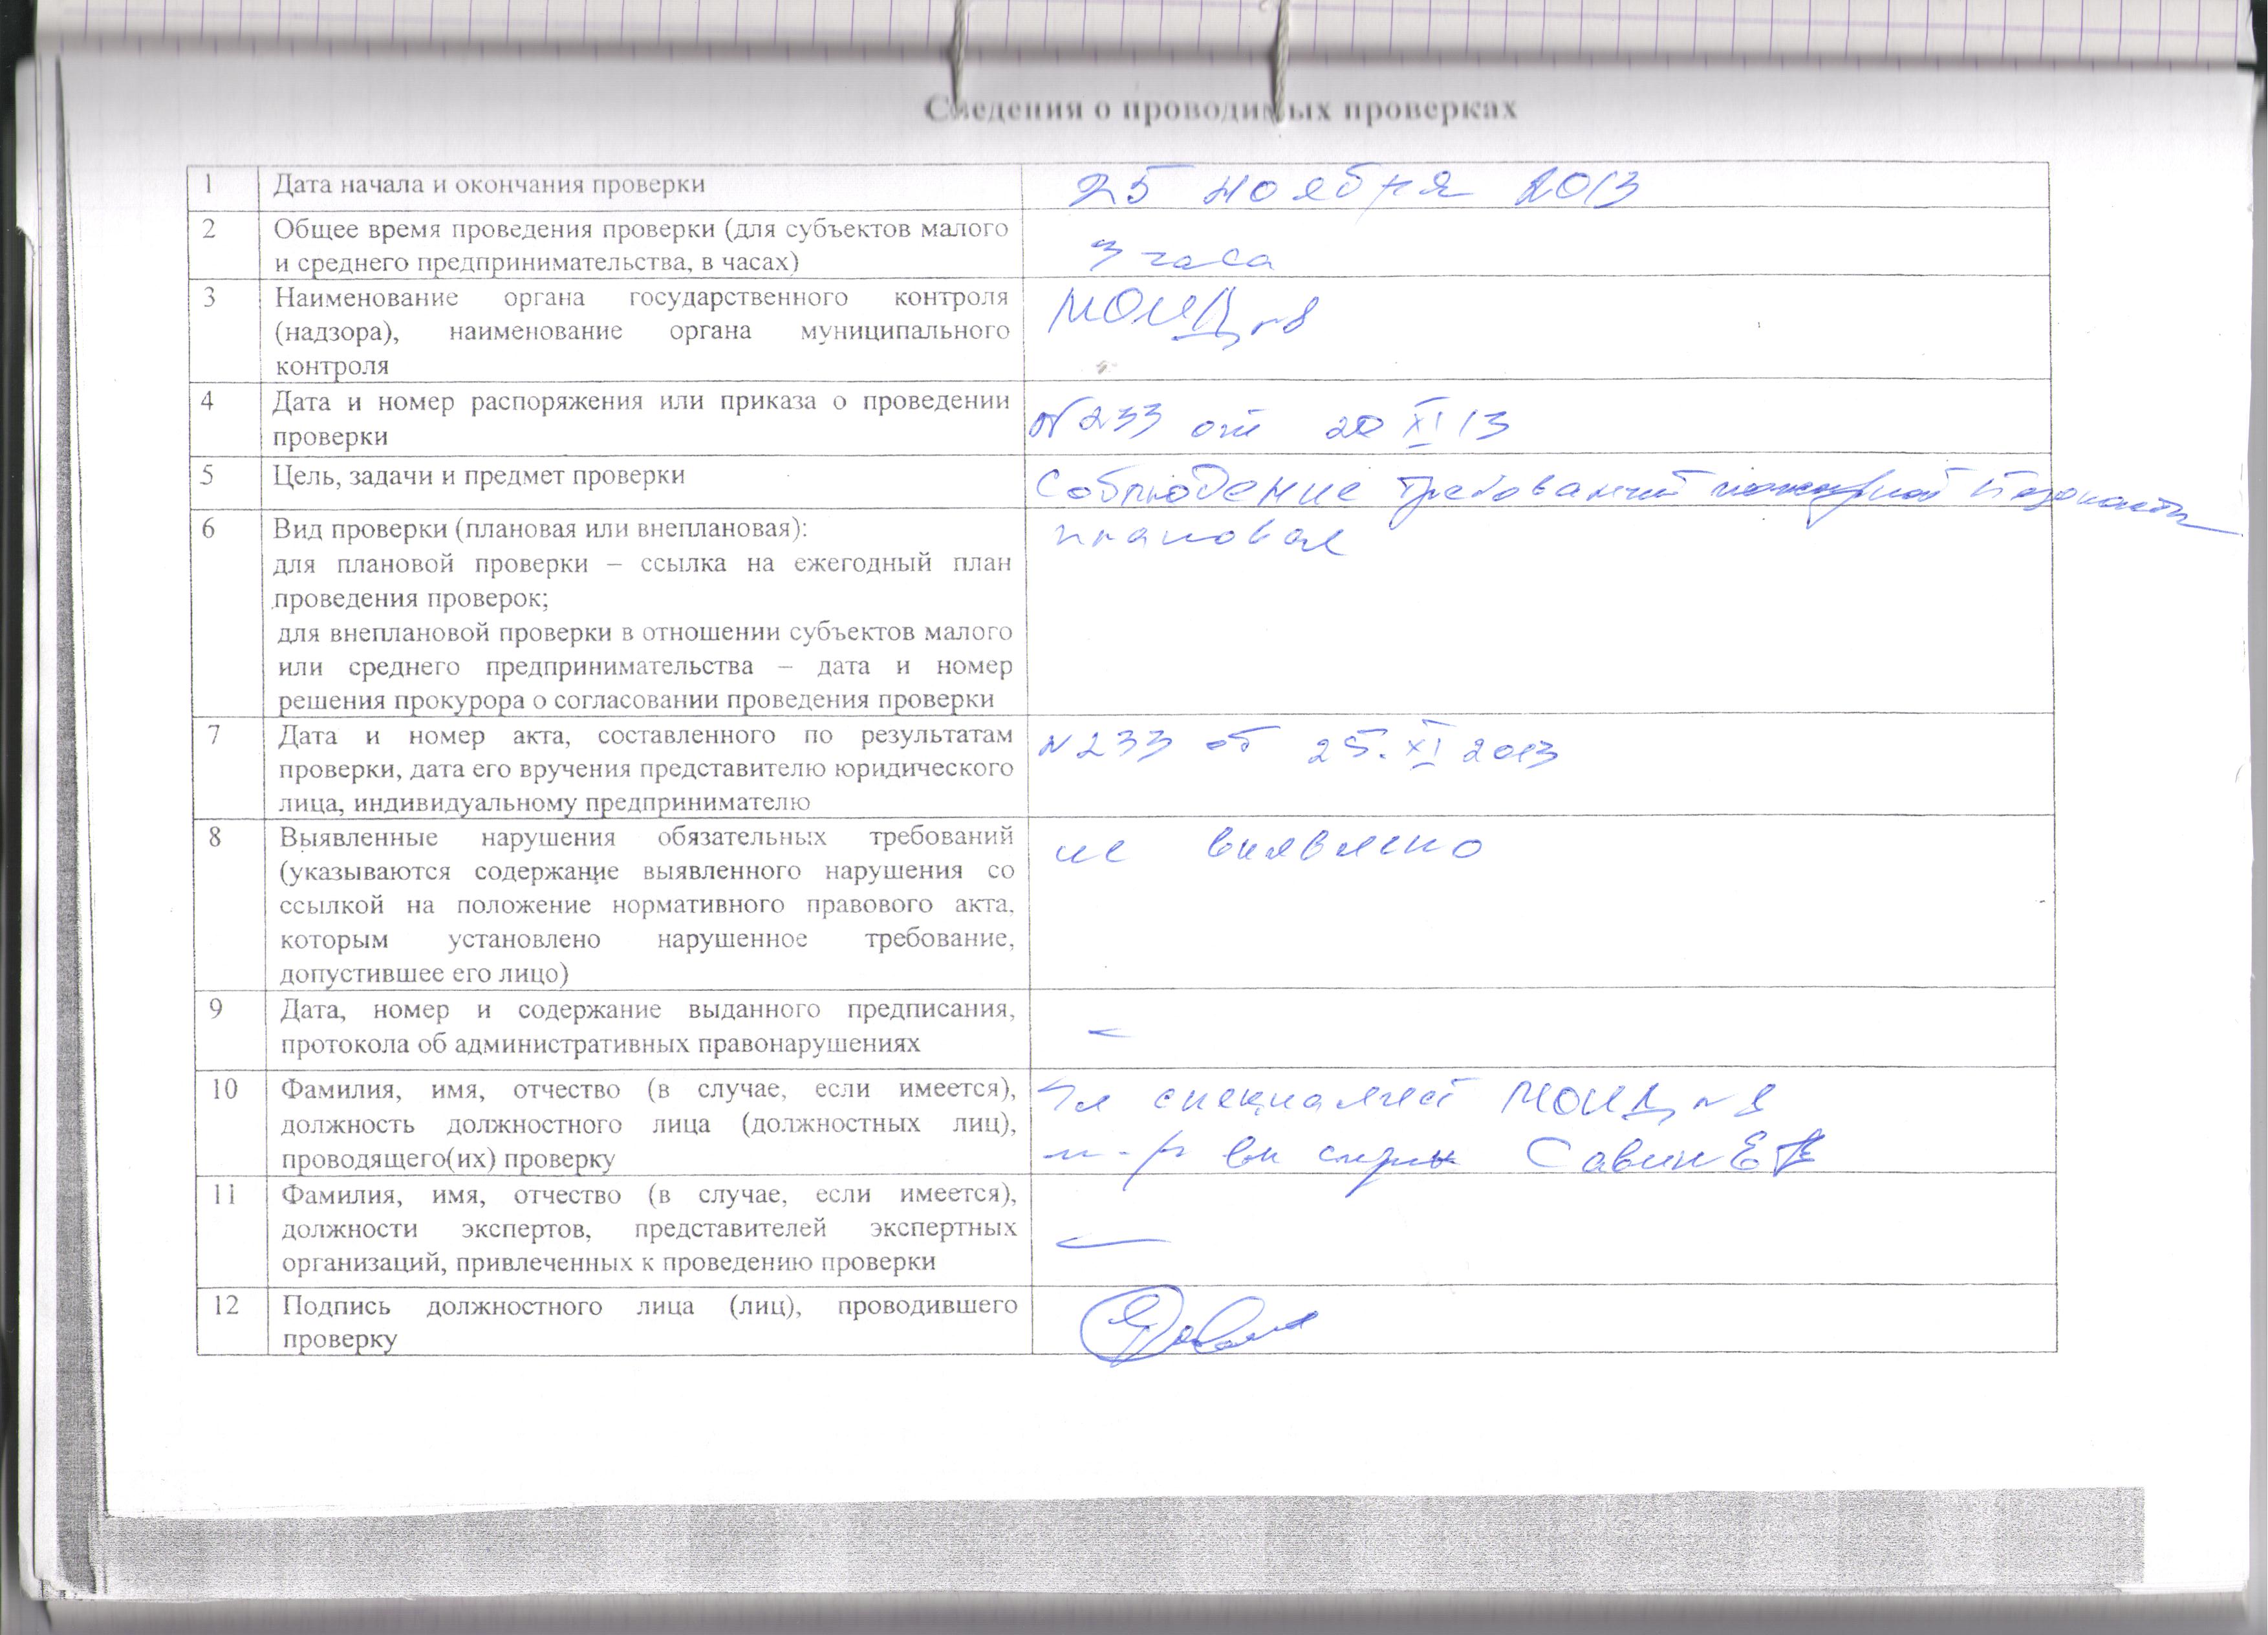 Сведения о проводимых проверках
1 Дата начала и окончания проверки 25 ноября 2013
2 Общее время проведения проверки (для субъектов малого
и среднего предпринимательства, в часах) 3 часа
3 Наименование органа государственного контроля
(надзора), наименование органа муниципального
контроля
МОНД №8
4 Дата и номер распоряжения или приказа о проведении
проверки
№233 от 20 XI 13
5 Цель, задачи и предмет проверки Соблюдение требований пожарной безопасности
6 Вид проверки (плановая или внеплановая):
для плановой проверки – ссылка на ежегодный план
проведения проверок;
для внеплановой проверки в отношении субъектов малого
или среднего предпринимательства – дата и номер
решения прокурора о согласовании проведения проверки
плановая
7 Дата и номер акта, составленного по результатам
проверки, дата его вручения представителю юридического
лица, индивидуальному предпринимателю
№233 от 25.XI 2013
8 Выявленные нарушения обязательных требований
(указываются содержание выявленного нарушения со
ссылкой на положение нормативного правового акта,
которым установлено нарушенное требование,
допустившее его лицо)
не выявлено
9 Дата, номер и содержание выданного предписания,
протокола об административных правонарушениях
–
10 Фамилия, имя, отчество (в случае, если имеется),
должность должностного лица (должностных лиц),
проводящего(их) проверку
Гл специалист МОНД №8
вн службы Савин Е
11 Фамилия, имя, отчество (в случае, если имеется),
должности экспертов, представителей экспертных
организаций, привлеченных к проведению проверки
—
12 Подпись должностного лица (лиц), проводившего
проверку